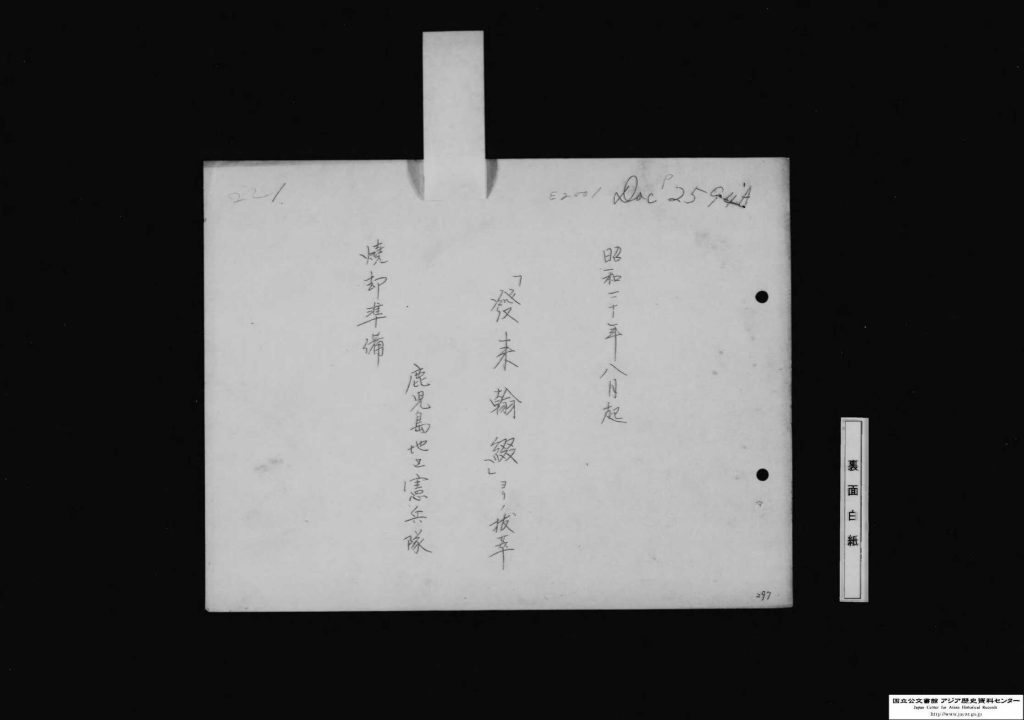 221.
E2001
Doc P 2594A
昭和二十年八月起
「發来翰綴」ヨリノ抜萃
鹿児島地区憲兵隊
焼却準備
297
裏面白紙
国立公文書館 アジア歴史資料センター
Japan Center for Asian Historical Records
http://www.jacar.go.jp